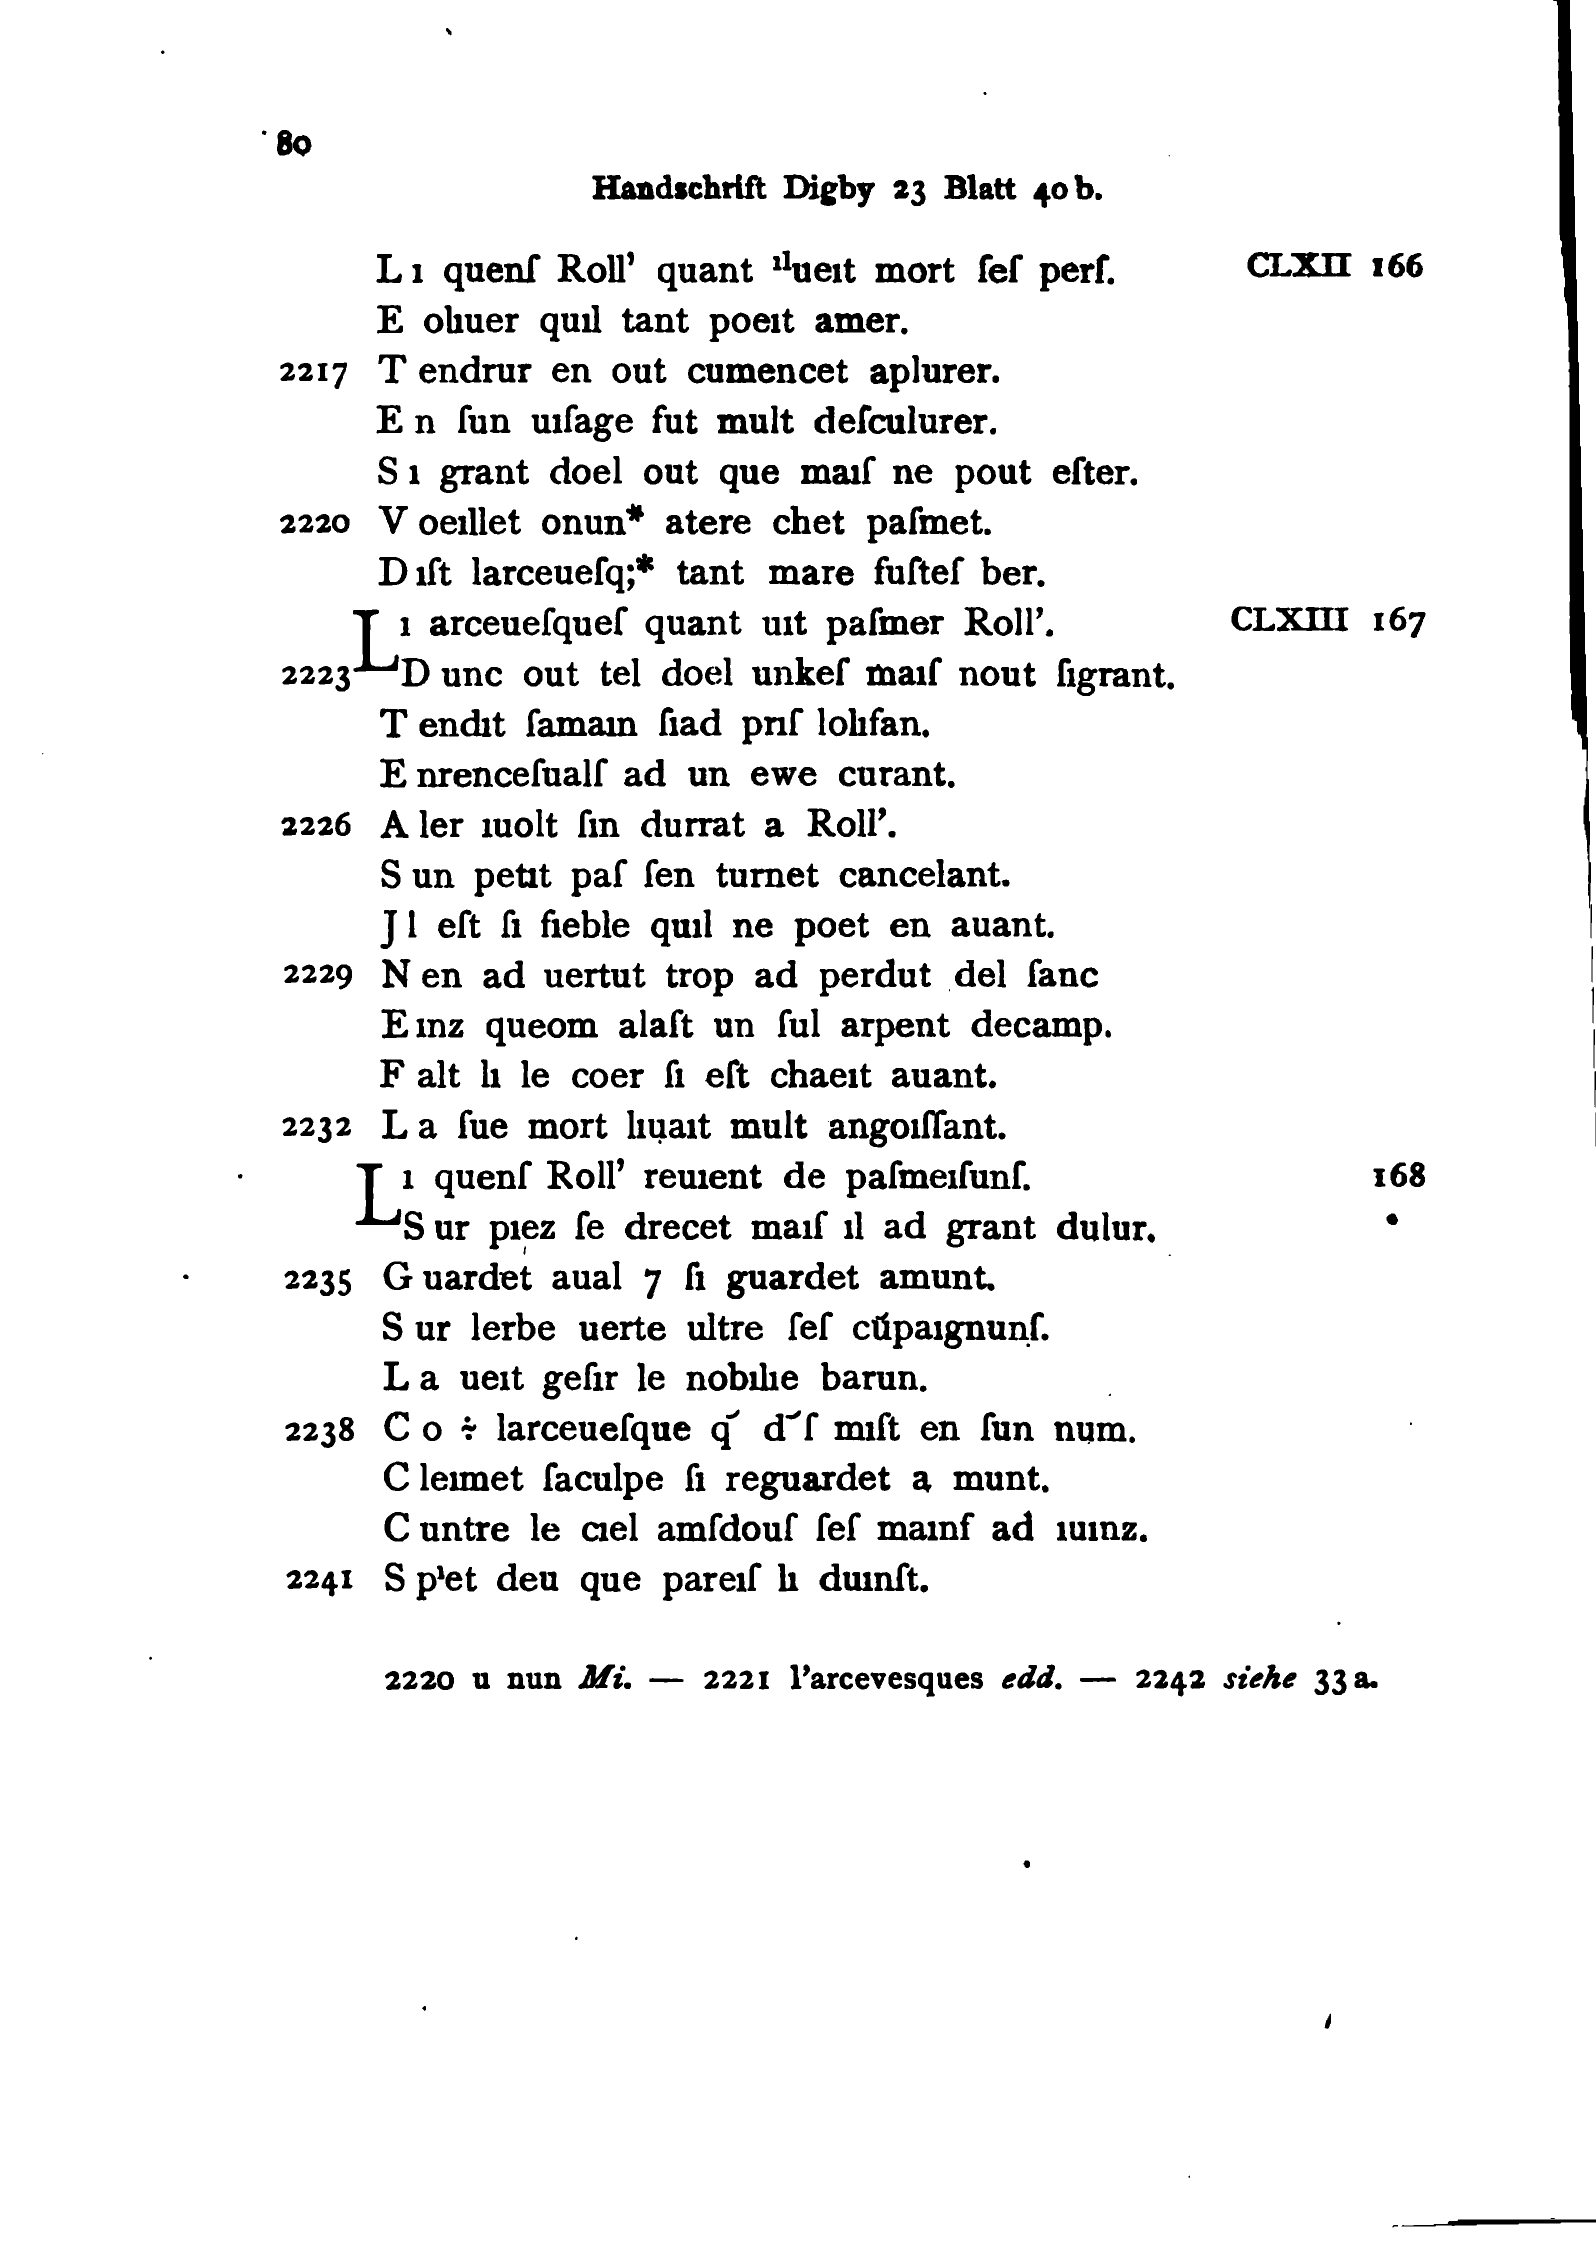 80
Handschrift Digby 23 Blatt 40b.
L ı quenſ Roll’ quant ıl ueıt mort ſeſ perſ. CLXII 166
E olıuer quıl tant poeıt amer.
2217 T endrur en out cumencet aplurer.
E n ſun uıſage fut mult deſculurer.
S ı grant doel out que maıſ ne pout eſter.
2220 V oeıllet onun* atere chet paſmet.
D ıſt larceueſq;* tant mare fuſteſ ber.
L ı arceueſqueſ quant uıt paſmer Roll’. CLXIII 167
2223 D unc out tel doel unkeſ maıſ nout ſıgrant.
T endıt ſamaın ſıad prıſ lolıfan.
E nrenceſualſ ad un ewe curant.
2226 A ler ıuolt ſın durrat a Roll’.
S un petıt paſ ſen turnet cancelant.
J l eſt ſı fieble quıl ne poet en auant.
2229 N en ad uertut trop ad perdut del ſanc
E ınz queom alaſt un ſul arpent decamp.
F alt lı le coer ſı eſt chaeıt auant.
2232 L a ſue mort lıụaıt mult angoıſſant.
L ı quenſ Roll’ reuıent de paſmeıſunſ. 168
S ur pıez ſe drecet maıſ ıl ad grant dulur.
2235 G uardet aual 7 ſı guardet amunt.
S ur lerbe uerte ultre ſeſ cũpaıgnuṇſ.
L a ueıt geſır le nobılıe barun.
2238 C o ÷ larceueſque q̄ d̄ſ mıſt en ſun nụm.
C leımet ſaculpe ſı reguardet a munt.
C untre le cıel amſdouſ ſeſ maınſ ad ıuınz.
2241 S pⁱet deu que pareıſ lı duınſt.
2220 u nun Mi. — 2221 l’arcevesques edd. — 2242 siehe 33a.